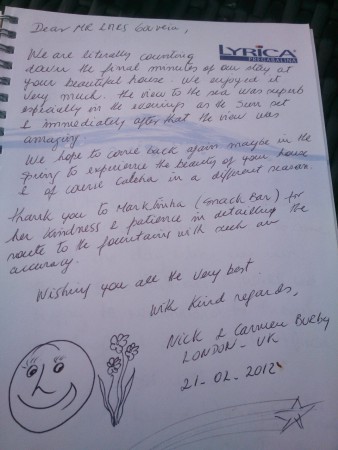 Dear MR LARS
LYRICA
PREGABALINA
We are literally counting
down the final minutes of our stay at
your beautiful house. We enjoyed it
very much. The view to the sea was superb
especially in the evenings as the sun set
& immediately after that the view was
amazing.
We hope to come back again maybe in the
Spring to experience the beauty of your house
& of course in a different season.
Thank you to (Snack Bar) for
her kindness & patience in detailing the
route to the fountains with such an
accuracy.
Wishing you all the very best.
With kind regards,
Nick & Carmen
LONDON - UK
21-02-2012